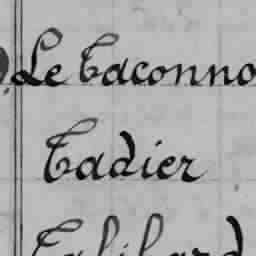 Le Taconno
Tadier